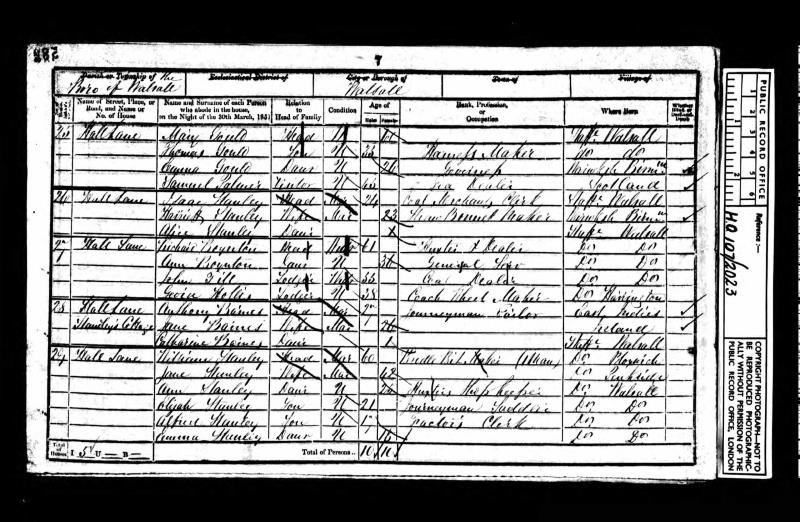 7
Parish or Township of the
Boro of Walsall
Ecclesiastical District of
City or Borough of
Walsall
Town of
Village of
Name of Street, Place, or Road, and Name or No. of House
Name and Surname of each Person who abode in the house, on the Night of the 30th March, 1851
Relation to Head of Family
Condition
Age of
Males Females
Rank, Profession, or Occupation
Where Born
25 Hall Lane Mary Gould Head Staffs Walsall
Thomas Gould Son U 33 Harness Maker Do Do
Emma Gould Daur U 26 Warwicksh Birmm
Samuel Visitor U Tea Dealer Scotland
26 Hall Lane Isaac Stanley Head Mar 24 Coal Merchants Clerk Staffs Walsall
Harriett Stanley Wife Mar 23 Straw Bonnet Maker Warwicksh Birmm
Alice Stanley Daur Staffs Walsall
27 Hall Lane Richard Boynton Head 61 Dealer Do Do
Ann Boynton Daur U 30 General Serv Do Do
John Lodger 35 Coal Dealer Do Do
George Hollis Lodger U 38 Coach Wheel Maker Do
28 Hall Lane Anthony Baines Head Mar 27 Journeyman Tailor East Indies
Stanley's Cottage Jane Baines Wife Mar 26 Ireland
Catharine Baines Daur 1 Staffs Walsall
29 Hall Lane William Stanley Head Mar 60 Bridle Bit Maker Do Bloxwich
Jane Stanley Wife Mar 62 Do Penkridge
Ann Stanley Daur U Do Walsall
Elijah Stanley Son U 21 Journeyman Saddler Do Do
Alfred Stanley Son U 17 Factors Clerk Do Do
Emma Stanley Daur U 15 Do Do
Total of Houses I 5 U — B —
Total of Persons 10 10
PUBLIC RECORD OFFICE
1 2 3 4 5 6
Reference :-
HO 107/2023
COPYRIGHT PHOTOGRAPH—NOT TO
BE REPRODUCED PHOTOGRAPHIC-
ALLY WITHOUT PERMISSION OF THE
PUBLIC RECORD OFFICE, LONDON